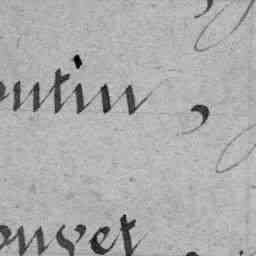 outin,
ouget